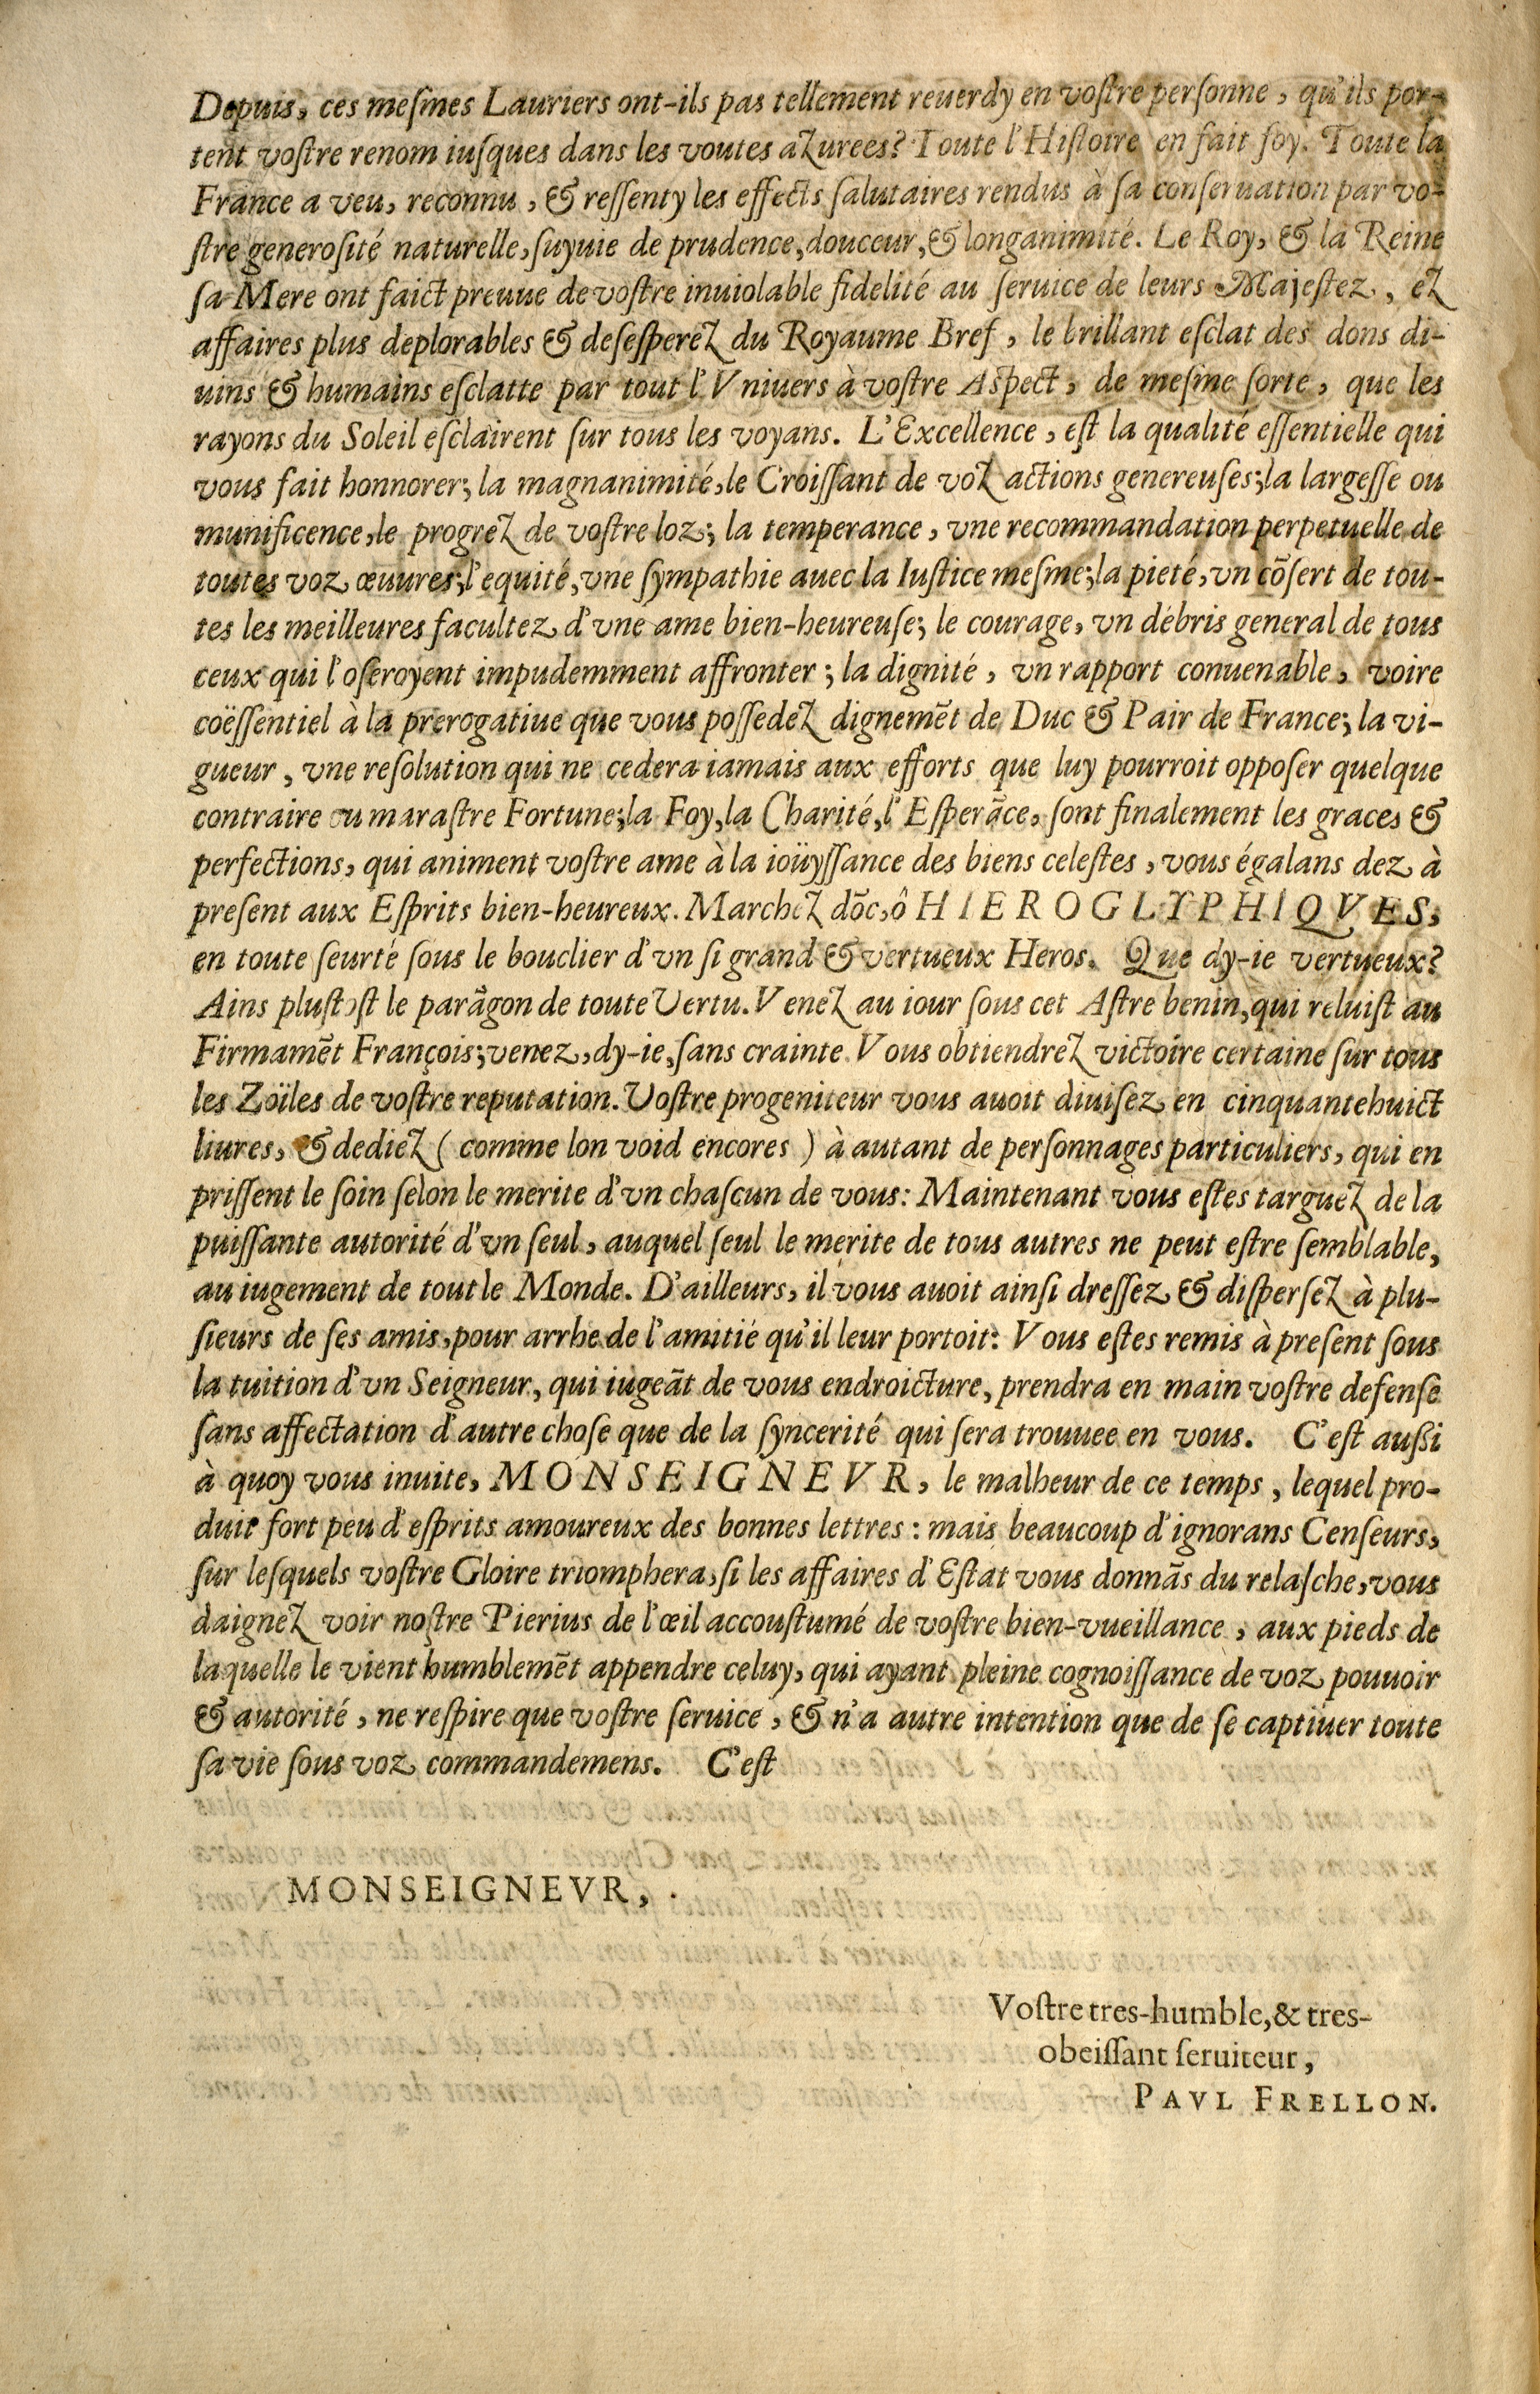 Depuis, ces meſmes Lauriers ont-ils pas tellement reuerdy en voſtre perſonne, qu'ils por-
tent voſtre renom iuſques dans les voutes azurees? Toute l'Hiſtoire en fait foy. Toute la
France a veu, reconnu, & reſſenty les effects ſalutaires rendus à ſa conſeruation par vo-
ſtre generoſité naturelle, ſuyuie de prudence, douceur, & longanimité. Le Roy, & la Reine
ſa Mere ont faict preuue de voſtre inuiolable fidelité au ſeruice de leurs Majeſtez, ez
affaires plus deplorables & deſeſperez du Royaume Bref, le brillant eſclat des dons di-
uins & humains eſclatte par tout l'Vniuers à voſtre Aſpect, de meſme ſorte, que les
rayons du Soleil eſclairent ſur tous les voyans. L'Excellence, eſt la qualité eſſentielle qui
vous fait honnorer; la magnanimité, le Croiſſant de voz actions genereuſes; la largeſſe ou
munificence, le progrez de voſtre loz; la temperance, vne recommandation perpetuelle de
toutes voz œuures; l'equité, vne ſympathie auec la Iuſtice meſme; la pieté, vn cõſert de tou-
tes les meilleures facultez d'vne ame bien-heureuſe; le courage, vn débris general de tous
ceux qui l'oſeroyent impudemment affronter; la dignité, vn rapport conuenable, voire
coëſſentiel à la prerogatiue que vous poſſedez dignemẽt de Duc & Pair de France; la vi-
gueur, vne reſolution qui ne cedera iamais aux efforts que luy pourroit oppoſer quelque
contraire ou maraſtre Fortune; la Foy, la Charité, l'Eſperãce, ſont finalement les graces &
perfections, qui animent voſtre ame à la ioüyſſance des biens celeſtes, vous égalans dez à
preſent aux Eſprits bien-heureux. Marchez dõc, ô HIEROGLYPHIQVES,
en toute ſeurté ſous le bouclier d'vn ſi grand & vertueux Heros. Que dy-ie vertueux?
Ains pluſtoſt le parãgon de toute Vertu. Venez au iour ſous cet Aſtre benin, qui reluiſt au
Firmamẽt François; venez, dy-ie, ſans crainte Vous obtiendrez victoire certaine ſur tous
les Zoïles de voſtre reputation. Voſtre progeniteur vous auoit diuiſez en cinquantehuict
liures, & dediez (comme lon void encores) à autant de perſonnages particuliers, qui en
priſſent le ſoin ſelon le merite d'vn chaſcun de vous: Maintenant vous eſtes targuez de la
puiſſante autorité d'vn ſeul, auquel ſeul le merite de tous autres ne peut eſtre ſemblable,
au iugement de tout le Monde. D'ailleurs, il vous auoit ainſi dreſſez & diſperſez à plu-
ſieurs de ſes amis, pour arrhe de l'amitié qu'il leur portoit: Vous eſtes remis à preſent ſous
la tuition d'vn Seigneur, qui iugeãt de vous endroicture, prendra en main voſtre defenſe
ſans affectation d'autre choſe que de la ſyncerité qui ſera trouuee en vous. C'eſt auſſi
à quoy vous inuite, MONSEIGNEVR, le malheur de ce temps, lequel pro-
duit fort peu d'eſprits amoureux des bonnes lettres: mais beaucoup d'ignorans Cenſeurs,
ſur leſquels voſtre Gloire triomphera, ſi les affaires d'Eſtat vous donnãs du relaſche, vous
daignez voir noſtre Pierius de l'œil accouſtumé de voſtre bien-vueillance, aux pieds de
laquelle le vient humblemẽt appendre celuy, qui ayant pleine cognoiſſance de voz pouuoir
& autorité, ne reſpire que voſtre ſeruice, & n'a autre intention que de ſe captiuer toute
ſa vie ſous voz commandemens. C'eſt
MONSEIGNEVR,
Voſtre tres-humble, & tres-
obeiſſant ſeruiteur,
PAVL FRELLON.